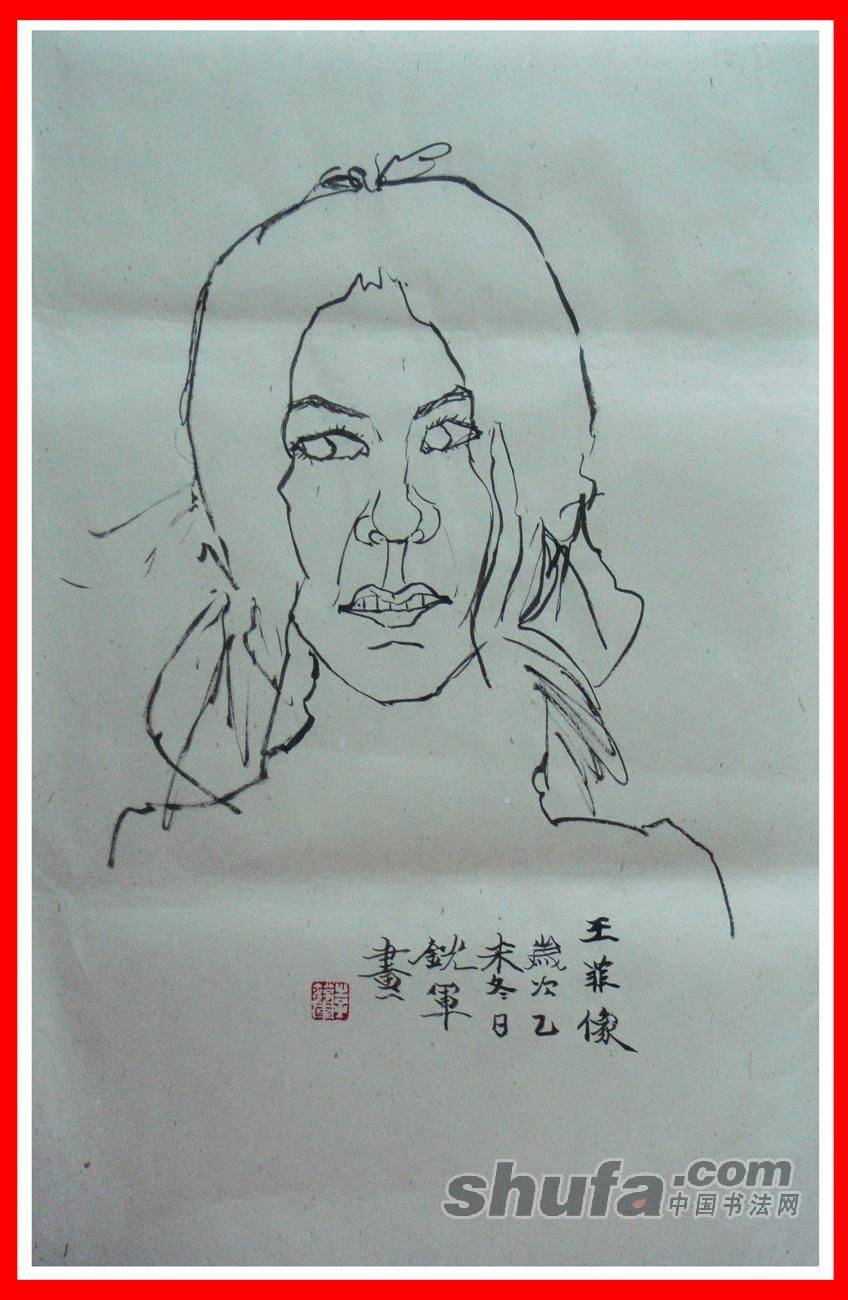 王菲像
歲次乙
未冬日
銧軍
畫
shufa.com
中国书法网